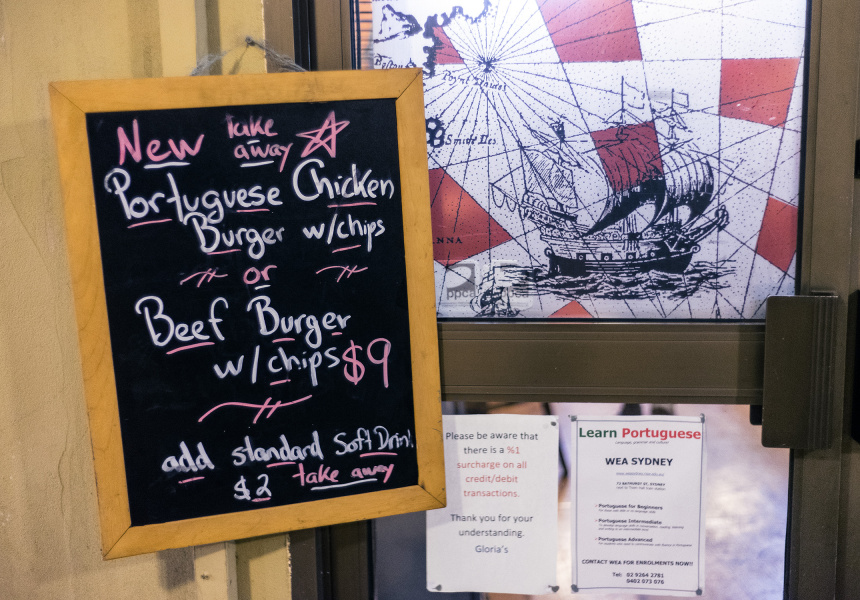 New Take
away
Portuguese Chicken
Burger w/chips
or
Beef Burger
w/chips $9
add standard Soft Drink
$2 take away
Point Daniel
Smide Iles
NNA
ppca
Please be aware that
there is a %1
surcharge on all
credit/debit
transactions.
Thank you for your
understanding.
Gloria's
Learn Portuguese
WEA SYDNEY
72 BATHURST ST, SYDNEY
- Portuguese for Beginners
- Portuguese Intermediate
- Portuguese Advanced
CONTACT WEA FOR ENROLMENTS NOW!!
Tel: 02 9264 2781
0402 073 076